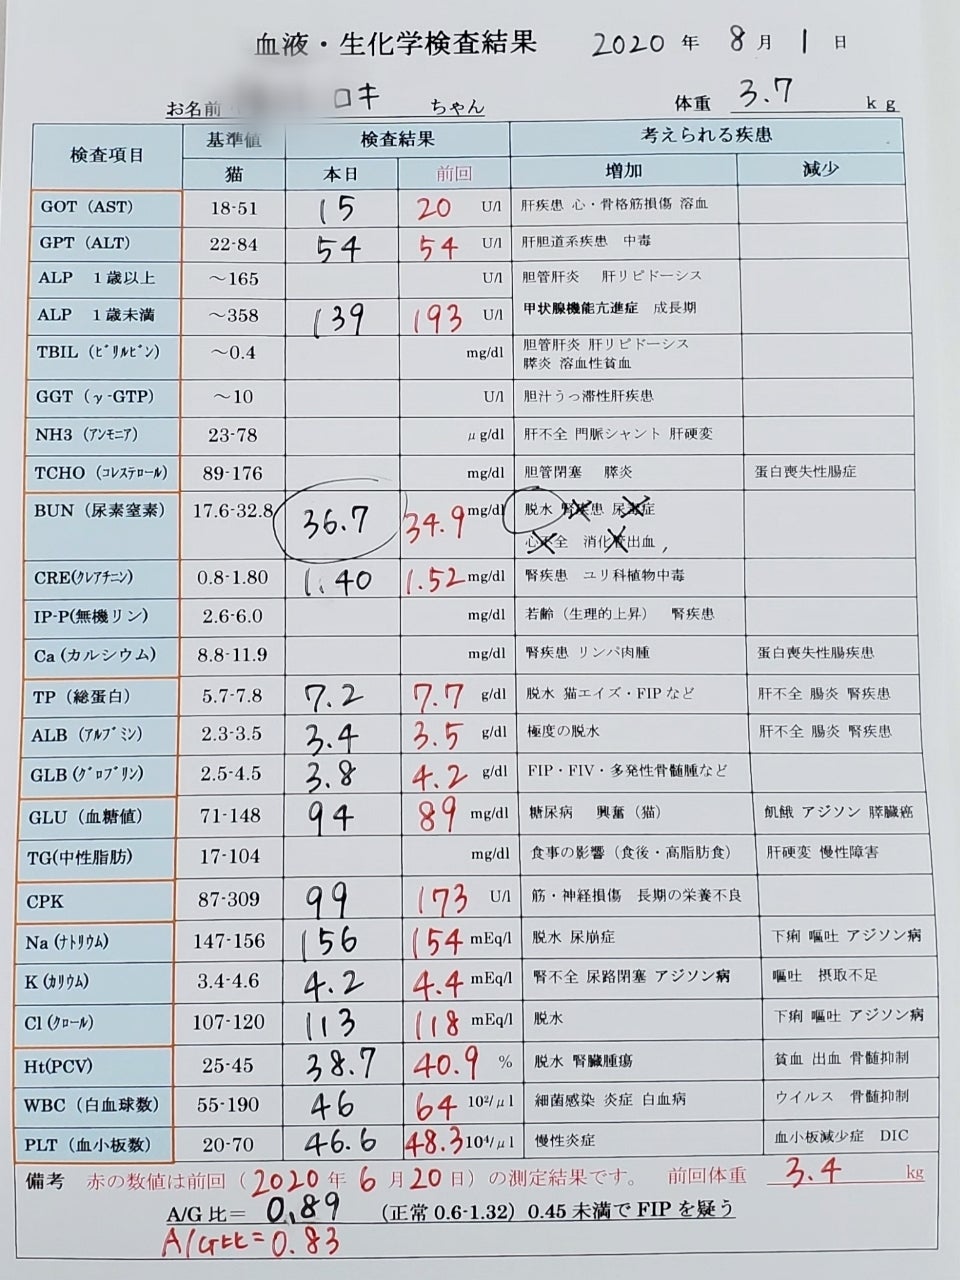 血液・生化学検査結果 2020 年 8 月 1 日
お名前 ロキ ちゃん 体重 3.7 kg
検査項目 基準値 検査結果 考えられる疾患
猫 本日 前回 増加 減少
GOT (AST) 18-51 15 20 U/l 肝疾患 心・骨格筋損傷 溶血
GPT (ALT) 22-84 54 54 U/l 肝胆道系疾患 中毒
ALP 1歳以上 ～165 U/l 胆管肝炎 肝リピドーシス
ALP 1歳未満 ～358 139 193 U/l 甲状腺機能亢進症 成長期
TBIL (ﾋﾞﾘﾙﾋﾞﾝ) ～0.4 mg/dl 胆管肝炎 肝リピドーシス
膵炎 溶血性貧血
GGT (γ-GTP) ～10 U/l 胆汁うっ滞性肝疾患
NH3 (ｱﾝﾓﾆｱ) 23-78 μg/dl 肝不全 門脈シャント 肝硬変
TCHO (ｺﾚｽﾃﾛｰﾙ) 89-176 mg/dl 胆管閉塞 膵炎 蛋白喪失性腸症
BUN (尿素窒素) 17.6-32.8 36.7 34.9 mg/dl 脱水 腎疾患 尿毒症
心不全 消化管出血
CRE(ｸﾚｱﾁﾆﾝ) 0.8-1.80 1.40 1.52 mg/dl 腎疾患 ユリ科植物中毒
IP-P(無機リン) 2.6-6.0 mg/dl 若齢（生理的上昇） 腎疾患
Ca (カルシウム) 8.8-11.9 mg/dl 腎疾患 リンパ肉腫 蛋白喪失性腸疾患
TP (総蛋白) 5.7-7.8 7.2 7.7 g/dl 脱水 猫エイズ・FIPなど 肝不全 腸炎 腎疾患
ALB (ｱﾙﾌﾞﾐﾝ) 2.3-3.5 3.4 3.5 g/dl 極度の脱水 肝不全 腸炎 腎疾患
GLB (ｸﾞﾛﾌﾞﾘﾝ) 2.5-4.5 3.8 4.2 g/dl FIP・FIV・多発性骨髄腫など
GLU (血糖値) 71-148 94 89 mg/dl 糖尿病 興奮（猫） 飢餓 アジソン 膵臓癌
TG(中性脂肪) 17-104 mg/dl 食事の影響（食後・高脂肪食） 肝硬変 慢性障害
CPK 87-309 99 173 U/l 筋・神経損傷 長期の栄養不良
Na (ﾅﾄﾘｳﾑ) 147-156 156 154 mEq/l 脱水 尿崩症 下痢 嘔吐 アジソン病
K (ｶﾘｳﾑ) 3.4-4.6 4.2 4.4 mEq/l 腎不全 尿路閉塞 アジソン病 嘔吐 摂取不足
Cl (ｸﾛｰﾙ) 107-120 113 118 mEq/l 脱水 下痢 嘔吐 アジソン病
Ht(PCV) 25-45 38.7 40.9 % 脱水 腎臓腫瘍 貧血 出血 骨髄抑制
WBC (白血球数) 55-190 46 64 10²/μl 細菌感染 炎症 白血病 ウイルス 骨髄抑制
PLT (血小板数) 20-70 46.6 48.3 10⁴/μl 慢性炎症 血小板減少症 DIC
備考 赤の数値は前回（2020 年 6 月 20 日）の測定結果です。 前回体重 3.4 kg
A/G 比＝ 0.89 （正常 0.6-1.32）0.45 未満で FIP を疑う
A/G比=0.83